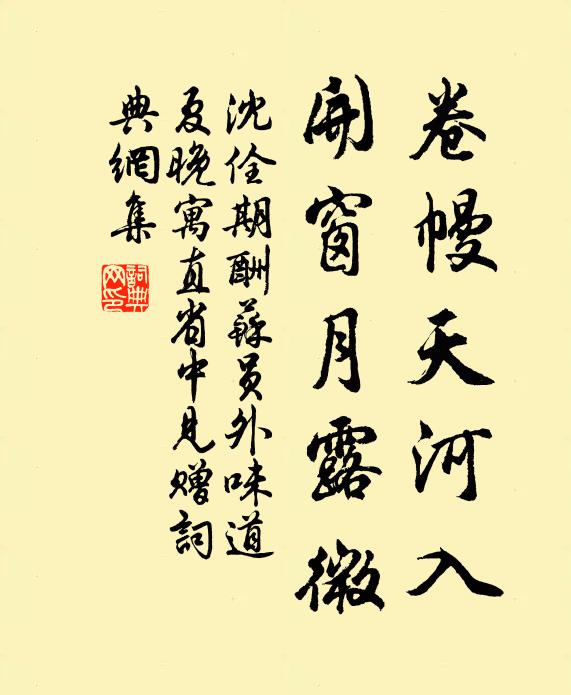 卷幔天河入
開窗月露微
沈佺期酬蘇員外味道
夏晚寓直省中見贈詞
典網集
詞典網印